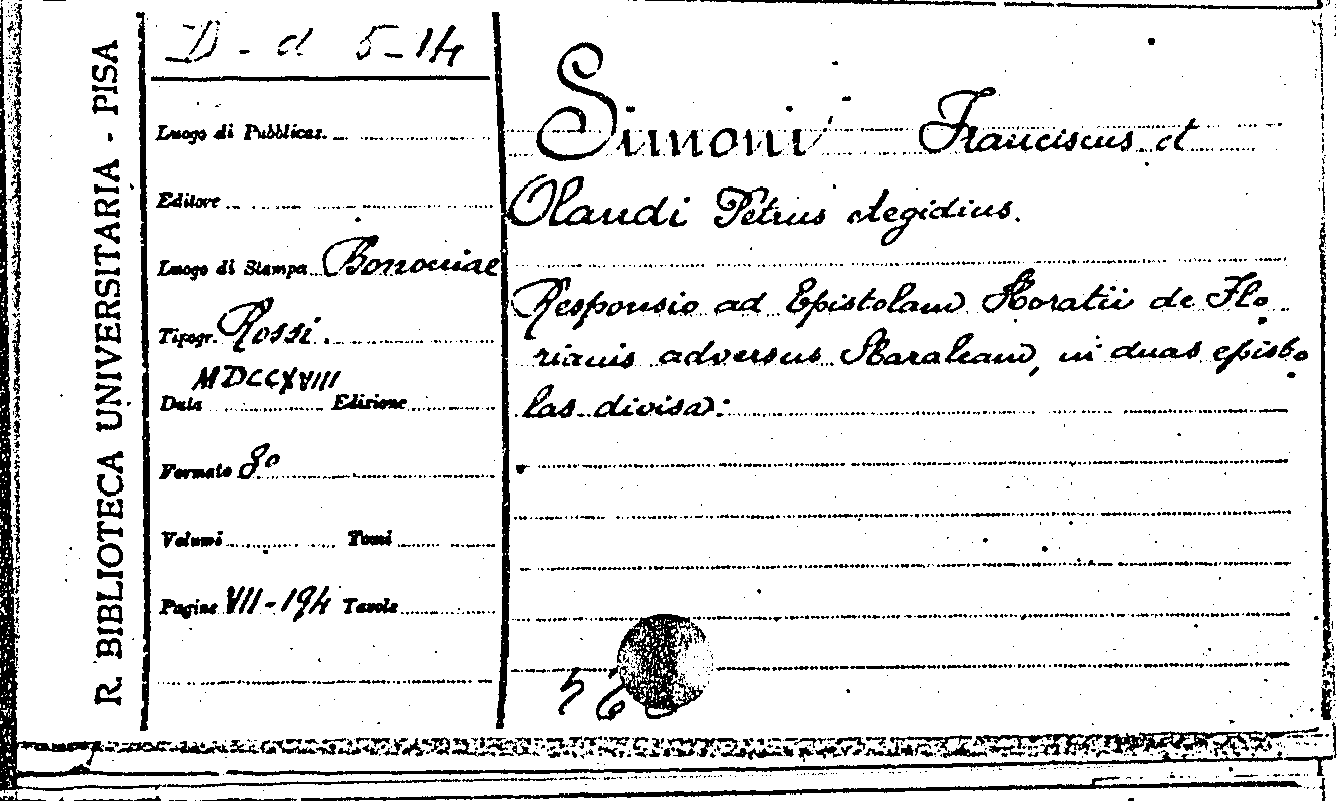 R. BIBLIOTECA UNIVERSITARIA - PISA
D - d 5-14
Luogo di Pubblicaz.
Editore
Luogo di Stampa Bononiae
Tipogr. Rossi.
MDCCXVIII
Data Edizione
Formato 8º
Volumi Tomi
Pagine VII-194 Tavole
Simoni Franciscus et
Olandi Petrus Aegidius.
Responsio ad Epistolam Horatii de Flo
rianis adversus , in duas episto
las divisa: